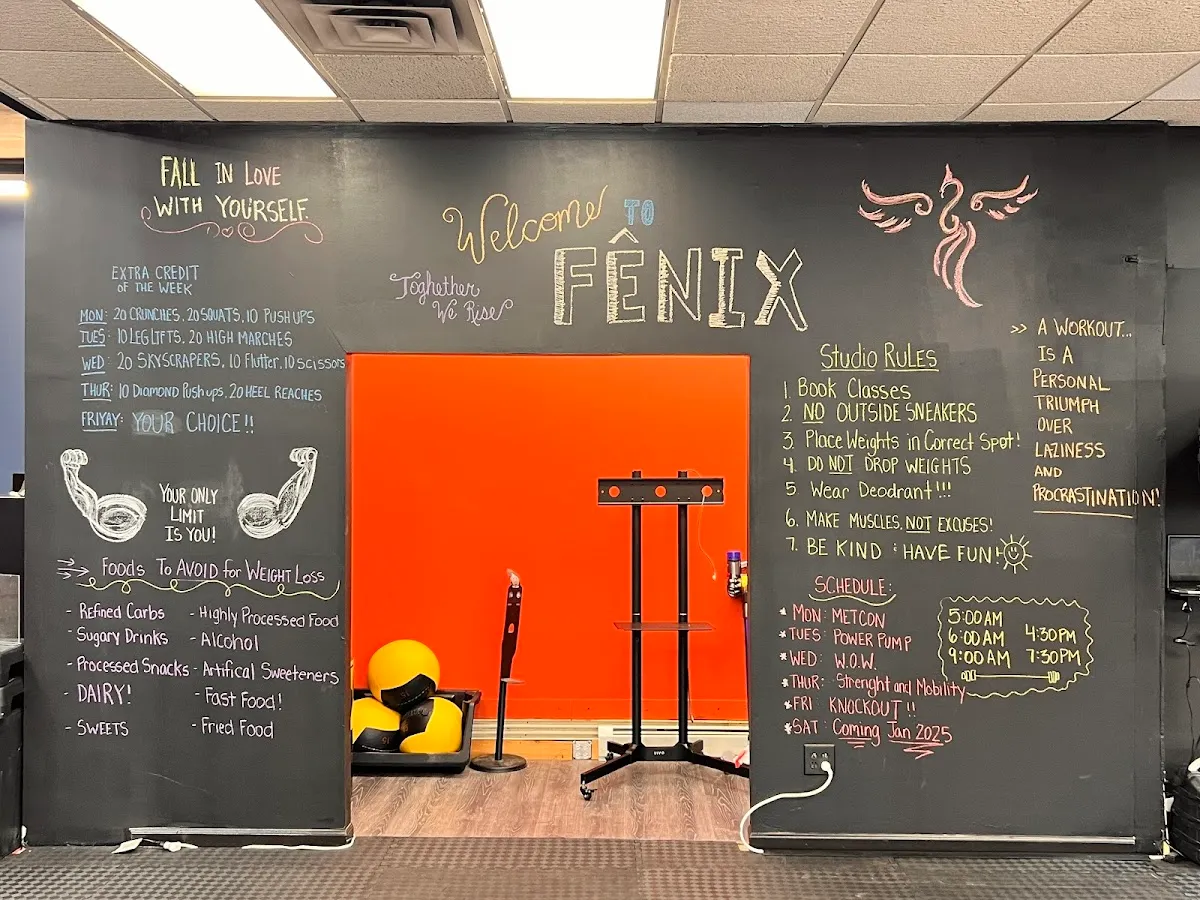 FALL IN LOVE
WITH YOURSELF.
EXTRA CREDIT
OF THE WEEK
MON: 20 CRUNCHES, 20 SQUATS, 10 PUSH UPS
TUES: 10 LEG LIFTS, 20 HIGH MARCHES
WED: 20 SKYSCRAPERS, 10 Flutter, 10 Scissors
THUR: 10 DIAMOND Push ups, 20 HEEL REACHES
FRIYAY: YOUR CHOICE!!
YOUR ONLY
LIMIT
IS YOU!
FOODS TO AVOID for WEIGHT LOSS
- Refined Carbs
- Sugary Drinks
- Processed Snacks
- DAIRY!
- SWEETS
- Highly Processed Food
- Alcohol
- Artifical Sweeteners
- Fast Food!
- Fried Food
Welcome TO
FÊNIX
Toghether
We Rise
Studio RULES
1. Book Classes
2. NO OUTSIDE SNEAKERS
3. Place Weights in Correct Spot!
4. DO NOT DROP WEIGHTS
5. Wear Deodrant!!!
6. MAKE MUSCLES, NOT EXCUSES!
7. BE KIND & HAVE FUN!
>> A WORKOUT...
IS A
PERSONAL
TRIUMPH
OVER
LAZINESS
AND
PROCRASTINATION!
SCHEDULE:
* MON: METCON
* TUES: POWER PUMP
* WED: W.O.W.
* THUR: Strenght and Mobility
* FRI: KNOCKOUT!!
* SAT: Coming Jan 2025
5:00 AM
6:00 AM
9:00 AM
4:30 PM
7:30 PM